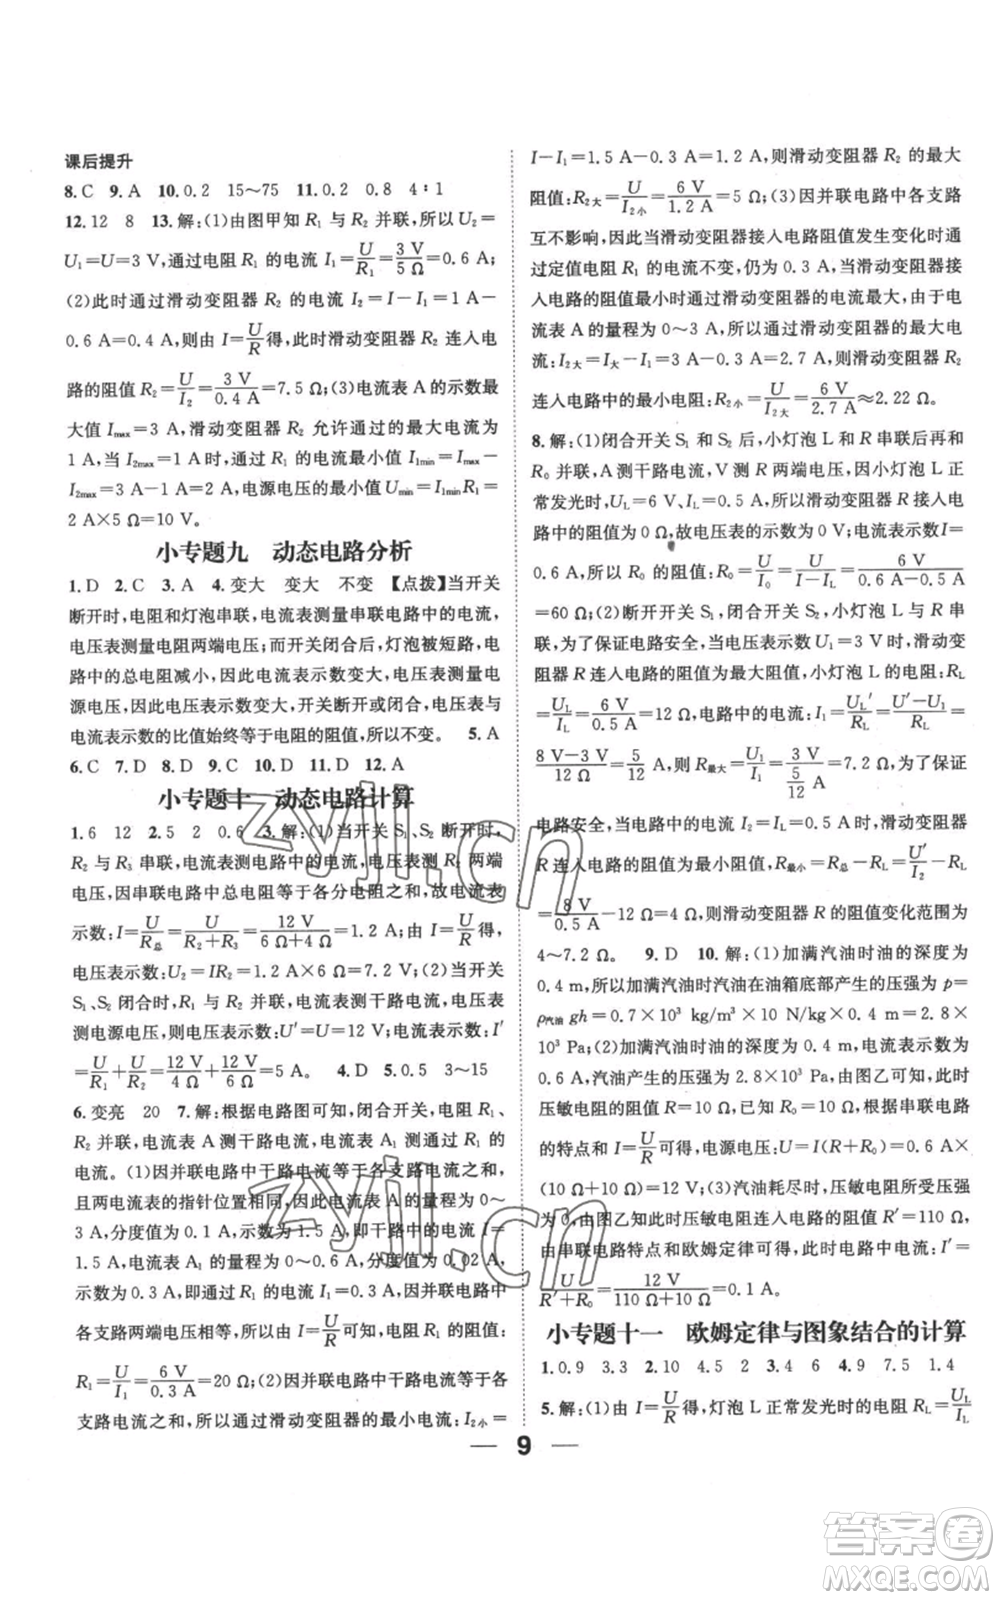 课后提升
8.C 9.A 10.0.2 15～75 11.0.2 0.8 4∶1
12.12 8 13.解:(1)由图甲知 R₁ 与 R₂ 并联,所以 U₂＝
U₁＝U＝3 V,通过电阻 R₁ 的电流 I₁＝U/R₁＝3 V/5 Ω＝0.6 A;
(2)此时通过滑动变阻器的电流 I₂＝I－I₁＝1 A－
0.6 A＝0.4 A,则由 I＝U/R得,此时滑动变阻器 R₂ 连入电
路的阻值 R₂＝U/I₂＝3 V/0.4 A＝7.5 Ω;(3)电流表 A 的示数最
大值 Imax＝3 A,滑动变阻器 R₂ 允许通过的最大电流为
1 A,当 I2max＝1 A 时,通过 R₁ 的电流最小值 I1min＝Imax－
I2max＝3 A－1 A＝2 A,电源电压的最小值 Umin＝I1minR₁＝
2 A×5 Ω＝10 V。
小专题九 动态电路分析
1.D 2.C 3.A 4.变大 变大 不变 【点拨】当开关
断开时,电阻和灯泡串联,电流表测量串联电路中的电流,
电压表测量电阻两端电压;而开关闭合后,灯泡短路,电路
中的总电阻减小,因此电流表示数变大,此时电压表测量
电源电压,因此电压表示数变大,开关断开时,电压表与
电流表示数的比值始终等于电阻的阻值,所以不变。 5.A
6.C 7.D 8.D 9.C 10.D 11.D 12.A
小专题十 动态电路计算
1.6 12 2.5 2 0.6 3.解:(1)当开关 S₁、S₂ 断开时,
R₂ 与 R₃ 串联,电流表测电路中的电流,电压表测 R₂ 两端
电压,因串联电路中总电阻等于各分电阻之和,故电流表
示数:I＝U/R总＝U/(R₂＋R₃)＝12 V/(6 Ω＋4 Ω)＝1.2 A;由 I＝U/R得,
电压表示数:U₂＝IR₂＝1.2 A×6 Ω＝7.2 V;(2)当开关
S₁、S₂ 闭合时,R₁ 与 R₂ 并联,电流表测干路电流,电压表
测电源电压,则电压表示数:U′＝U＝12 V,电流表示数:I′
＝U/R₁＋U/R₂＝12 V/4 Ω＋12 V/6 Ω＝5 A。 4.D 5.0.5 3～15
6.变亮 20 7.解:根据电路图可知,闭合开关,电阻 R₁、
R₂ 并联,电流表 A 测干路电流,电流表 A₁ 测通过 R₁ 的
电流。(1)因并联电路中干路电流等于各支路电流之和,
且两电流表的指针位置相同,因此电流表 A 的量程为 0～
3 A,分度值为 0.1 A,示数为 1.5 A,即干路中的电流 I＝
1.5 A。电流表 A₁ 的量程为 0～0.6 A,分度值为 0.02 A,
示数为 0.3 A,即通过 R₁ 的电流 I₁＝0.3 A,因并联电路中
各支路两端电压相等,所以由 I＝U/R可得,定值电阻 R₁ 的阻值:
R₁＝U/I₁＝6 V/0.3 A＝20 Ω;(2)因并联电路干路电流等于各
支路电流之和,所以通过滑动变阻器的最小电流:I2小＝
I－I₁＝1.5 A－0.3 A＝1.2 A,则滑动变阻器 R₂ 的最大
阻值:R2大＝U/I2小＝6 V/1.2 A＝5 Ω;(3)因并联电路中各支路
互不影响,因此当滑动变阻器接入电路阻值发生变化时通
过定值电阻 R₁ 的电流不变,仍为 0.3 A,当滑动变阻器接
入电路的阻值最小时通过的电流最大,由于电
流表 A 的量程为 0～3 A,所以通过滑动变阻器的最大电
流:I2大＝I大－I₁＝3 A－0.3 A＝2.7 A,则滑动变阻器 R₂
连入电路中的最小电阻:R2小＝U/I2大＝6 V/2.7 A≈2.22 Ω。
8.解:(1)闭合开关 S₁ 和 S₂ 后,小灯泡 L 和 R 串联后再和
R₀ 并联,A 测干路电流,V 测 R 两端电压,因小灯泡 L 正
常发光时,UL＝6 V、IL＝0.5 A,所以滑动变阻器 R 接入电
路中的阻值为 0 Ω,故电压表的示数为 0 V;电流表示数 I＝
0.6 A,所以 R₀ 的阻值:R₀＝U/I₀＝U/(I－IL)＝6 V/(0.6 A－0.5 A)
＝60 Ω;(2)断开开关 S₁,闭合开关 S₂,小灯泡 L 和 R 串
联,为了保证电路安全,当电压表示数 U₁＝3 V 时,滑动变
阻器 R 连入电路的阻值为最大阻值,小灯泡 L 的电阻:RL
＝UL/IL＝6 V/0.5 A＝12 Ω,电路中的电流:I₁＝UL′/RL＝(U′－U₁)/RL＝
(8 V－3 V)/12 Ω＝5/12 A,则 R最大＝U₁/I₁＝3 V/(5/12 A)＝7.2 Ω,为了保证
电路安全,当电路中的电流 I₂＝IL＝0.5 A 时,滑动变阻器
R 连入电路的阻值为最小阻值,R最小＝R总－RL＝U′/I₂－RL
＝8 V/0.5 A－12 Ω＝4 Ω,则滑动变阻器 R 的阻值变化范围为
4～7.2 Ω。 9.D 10.解:(1)加满汽油时油的深度为
0.4 m,所以加满汽油时汽油在油箱底部产生的压强为 p＝
ρ汽油 gh＝0.7×10³ kg/m³×10 N/kg×0.4 m＝2.8×
10³ Pa;(2)加满汽油时油的深度为 0.4 m,此时电路电流为
0.6 A,汽油产生的压强为 2.8×10³ Pa,由图乙可知,此时
压敏电阻的阻值 R＝10 Ω,已知 R₀＝10 Ω,根据串联电路
的特点和 I＝U/R可得,电源电压:U＝I(R＋R₀)＝0.6 A×
(10 Ω＋10 Ω)＝12 V;(3)汽油耗尽时,压敏电阻所受压强
为 0,由图乙知此时压敏电阻连入电路的阻值 R′＝110 Ω,
由串联电路特点和欧姆定律可得,此时电路中电流:I′＝
U/(R′＋R₀)＝12 V/(110 Ω＋10 Ω)＝0.1 A。
小专题十一 欧姆定律与图象结合的计算
1.0.9 3.3 2.10 4.5 2 3.4 6 4.9 7.5 1.4
5.解:(1)由 I＝U/R得,灯泡 L 正常发光时的电阻 RL＝UL/IL
9
zyjl.cn
zyjl.cn
答案卷
MXQE.COM